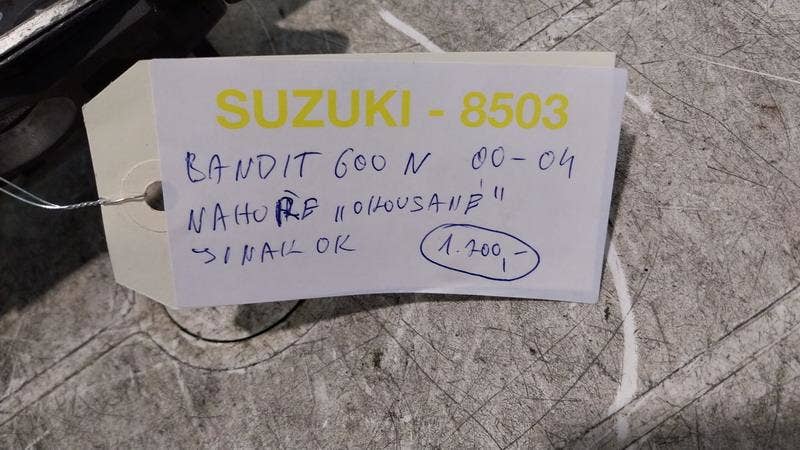 SUZUKI - 8503
BANDIT 600 N 00-04
NAHOŘE „OKOUSANÉ"
JINAK OK 1.700,-